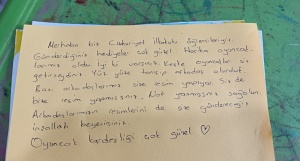 Merhaba biz Cumhuriyet İlkokulu öğrencileriyiz.
Gönderdiğiniz hediyeler çok güzel. Harika oyuncak-
larınız oldu. İyi ki varsınız. Keşke oyuncakları siz
getirseydiniz. Yüz yüze tanışıp arkadaş olurduk.
Bazı arkadaşlarımız size resim yapıyor. Siz de
bize resim yapmışsınız. Not yazmışsınız sağolun.
Arkadaşlarımızın resimlerini de size göndereceğiz
inşallah beğenirsiniz.
Oyuncak kardeşliği çok güzel ♡